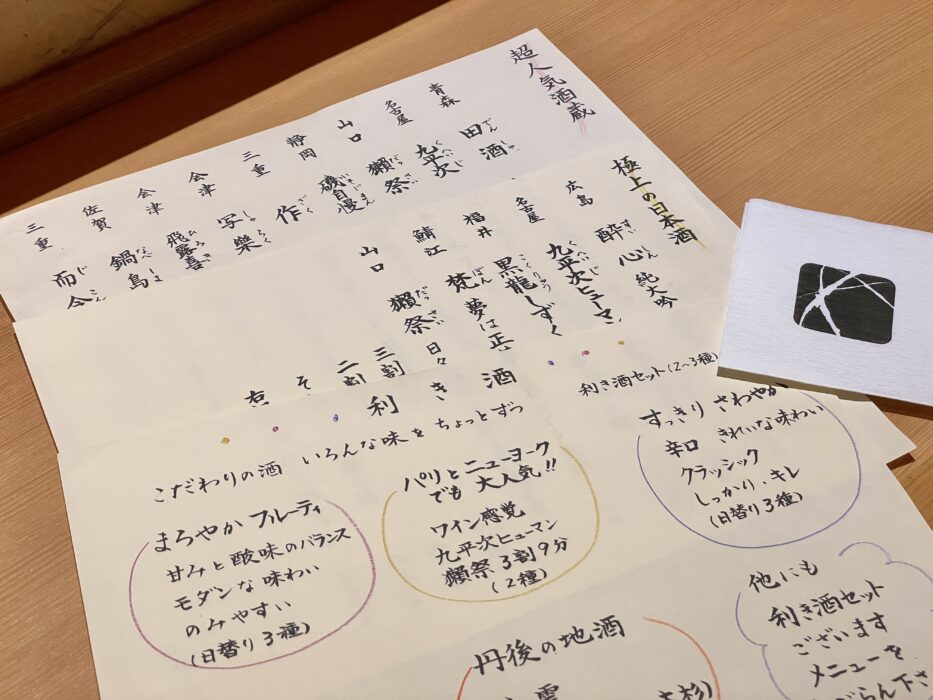 超人気酒蔵
青森 田酒 でんしゅ
名古屋 九平次 くへいじ
山口 獺祭 だっさい
静岡 磯自慢 いそじまん
三重 作 ざく
会津 写樂 しゃらく
会津 飛露喜 ひろき
佐賀 鍋島 なべしま
三重 而今 じこん
極上の日本酒
広島 酔心 純大吟 すいしん
名古屋 九平次ヒューマン くへいじ
福井 黒龍しずく こくりゅう
鯖江 梵 夢は正 ぼん
山口 獺祭 日々 だっさい
三割
二割
そ
利き酒
こだわりの酒 いろんな味を ちょっとずつ
利き酒セット(2〜3種)
まろやか フルーティ
甘みと酸味のバランス
モダンな味わい
のみやすい
(日替り3種)
パリとニューヨーク
でも 大人気!!
ワイン感覚
九平次ヒューマン
獺祭 3割9分
(2種)
すっきり さわやか
辛口 きれいな味わい
クラッシック
しっかり・キレ
(日替り3種)
丹後の地酒
他にも
利き酒セット
ございます
メニューを
らん下さ